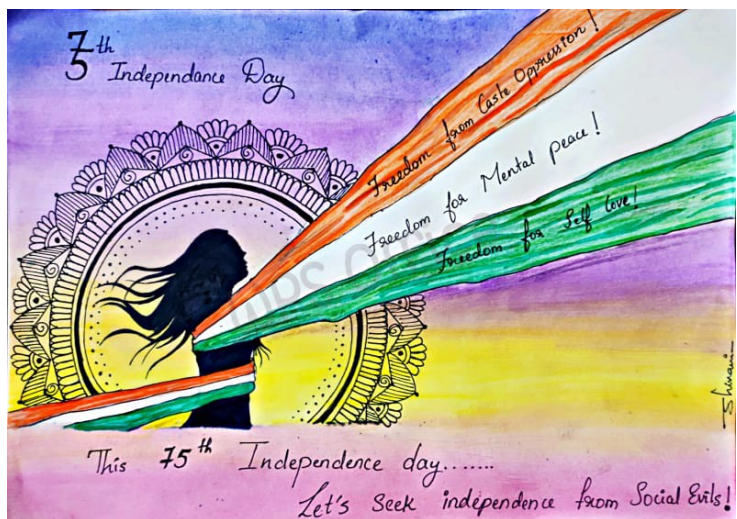 75th
Independance Day
Freedom from Caste Oppression!
Freedom for Mental peace!
Freedom for Self love!
This 75th Independence day.......
Let's Seek independence from Social Evils!